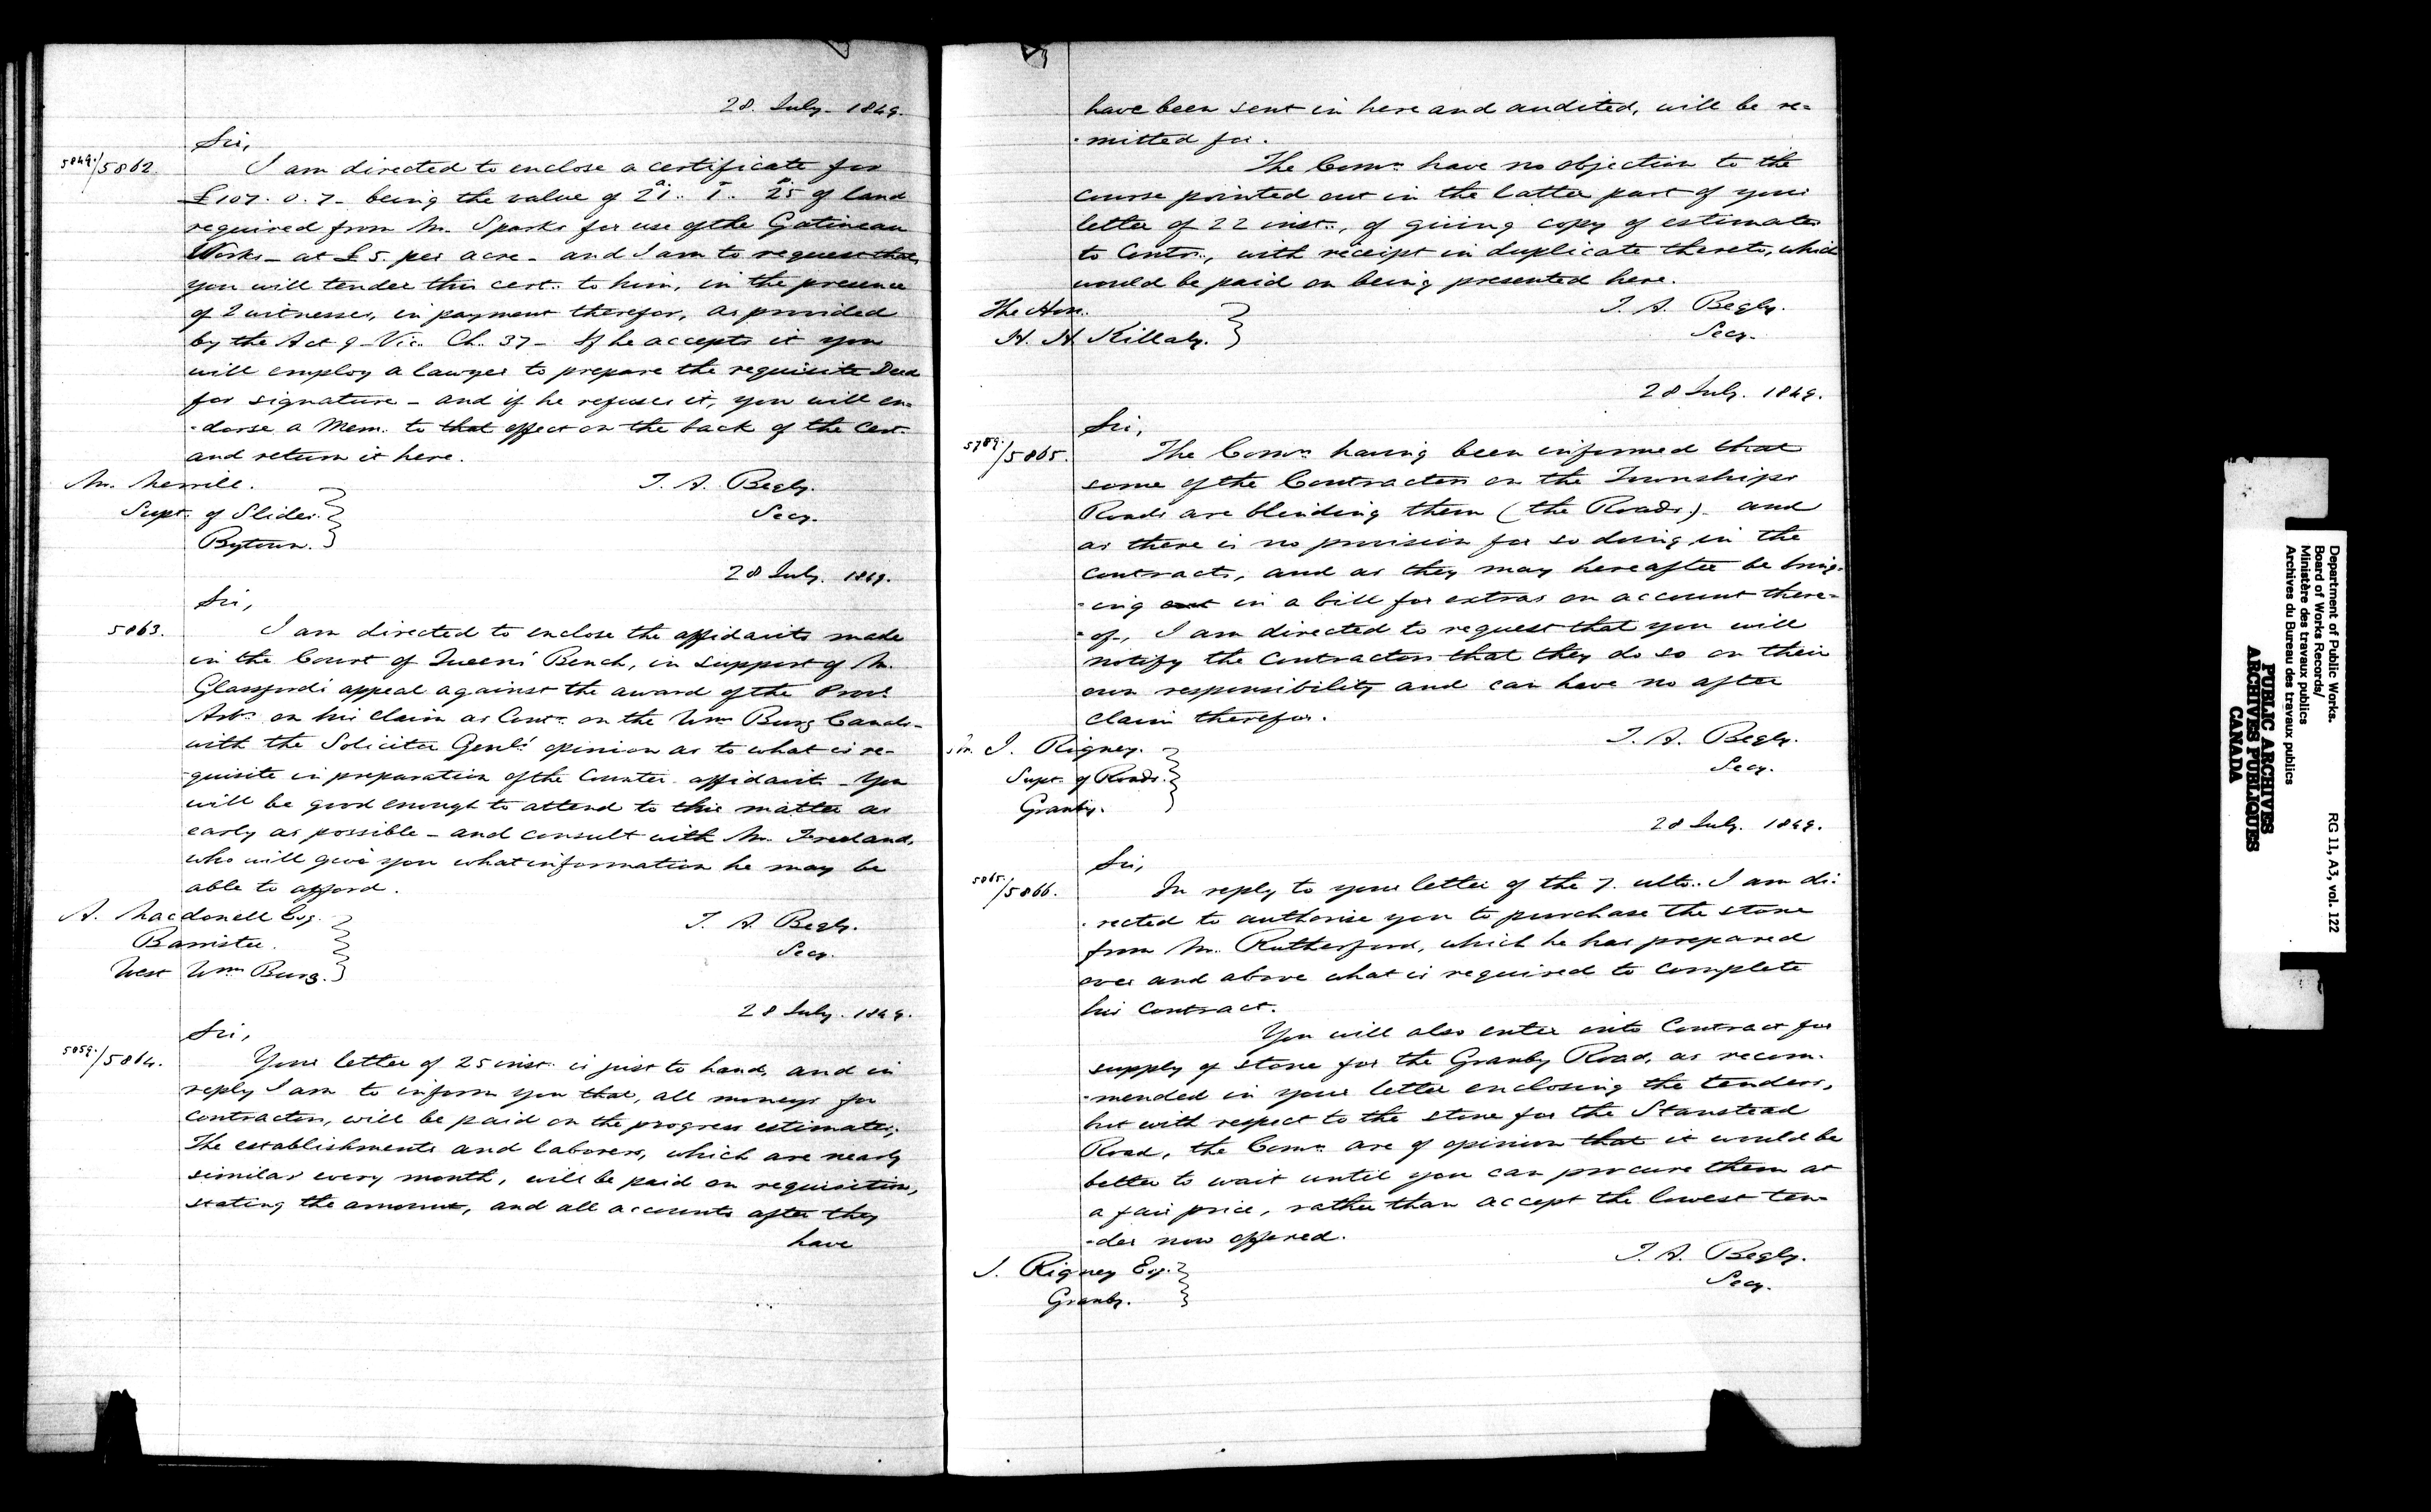 28. July. 1849.
Sir,
5849./5862.
I am directed to enclose a certificate for
£107. 0. 7 - being the value of 21.a. 1.r. 25p. of land
required from Mr. Sparks for use of the Gatineau
Works - at £5 per acre - and I am to request that
you will tender this cert. to him, in the presence
of 2 witnesses, in payment therefor, as provided
by the Act 9 Vic. Ch. 37 - If he accepts it you
will employ a lawyer to prepare the requisite Deed
for signature - and if he refuses it, you will en-
-dorse a Mem. to that effect on the back of the Cert.
and return it here.
Mr. Merrill.
Supt. of Slides.
Bytown.
T. A. Begly.
Secy.
28 July. 1849.
Sir,
5863.
I am directed to enclose the affidavits made
in the Court of Queens' Bench, in support of Mr.
Glassfords appeal against the award of the Provl.
Arbs. on his claim as Contr. on the Wms Burg Canals -
with the Solicitor Genls. opinion as to what is re-
quisite in preparation of the Counter affidavit - You
will be good enough to attend to this matter as
early as possible - and consult with Mr. Freeland,
who will give you what information he may be
able to afford.
A. Macdonell Esq.
Barrister.
West Wms Burg.
T. A. Begly.
Secy.
28 July. 1849.
Sir,
5859./5864.
Your letter of 25 inst. is just to hand, and in
reply I am to inform you that, all moneys for
contractors, will be paid on the progress estimates;
The establishments and laborers, which are nearly
similar every month, will be paid on requisition,
stating the amount, and all accounts after they
have
have been sent in here and audited, will be re-
-mitted for.
The Comrs. have no objection to the
course pointed out in the latter part of your
letter of 22 inst., of giving copy of estimates
to Contrs., with receipt in duplicate thereto, which
would be paid on being presented here.
The Hon.
H. H. Killaly.
T. A. Begly.
Secy.
28 July. 1849.
Sir,
5789./5865.
The Comrs. having been informed that
some of the Contractors on the Townships
Roads are blinding them (the Roads.) and
as there is no provision for so doing in the
contracts, and as they may hereafter be bring-
-ing out in a bill for extras on account there-
-of, I am directed to request that you will
notify the contractors that they do so on their
own responsibility and can have no after
claim therefor.
J. Rigney.
Supt. of Roads.
Granby.
T. A. Begly.
Secy.
28 July. 1849.
Sir,
5865./5866.
In reply to your letter of the 7. ulto. I am di-
-rected to authorise you to purchase the stone
from Mr. Rutherford, which he has prepared
over and above what is required to complete
his contract.
You will also enter into Contract for
supply of stone for the Granby Road, as recom-
-mended in your letter enclosing the tenders,
but with respect to the stone for the Stanstead
Road, the Comrs. are of opinion that it would be
better to wait until you can procure them at
a fair price, rather than accept the lowest ten-
-der now offered.
J. Rigney Esq.
Granby.
T. A. Begly.
Secy.
Department of Public Works.
Board of Works Records/
Ministère des travaux publics
Archives du Bureau des travaux publics
RG 11, A3, vol. 122
PUBLIC ARCHIVES
ARCHIVES PUBLIQUES
CANADA